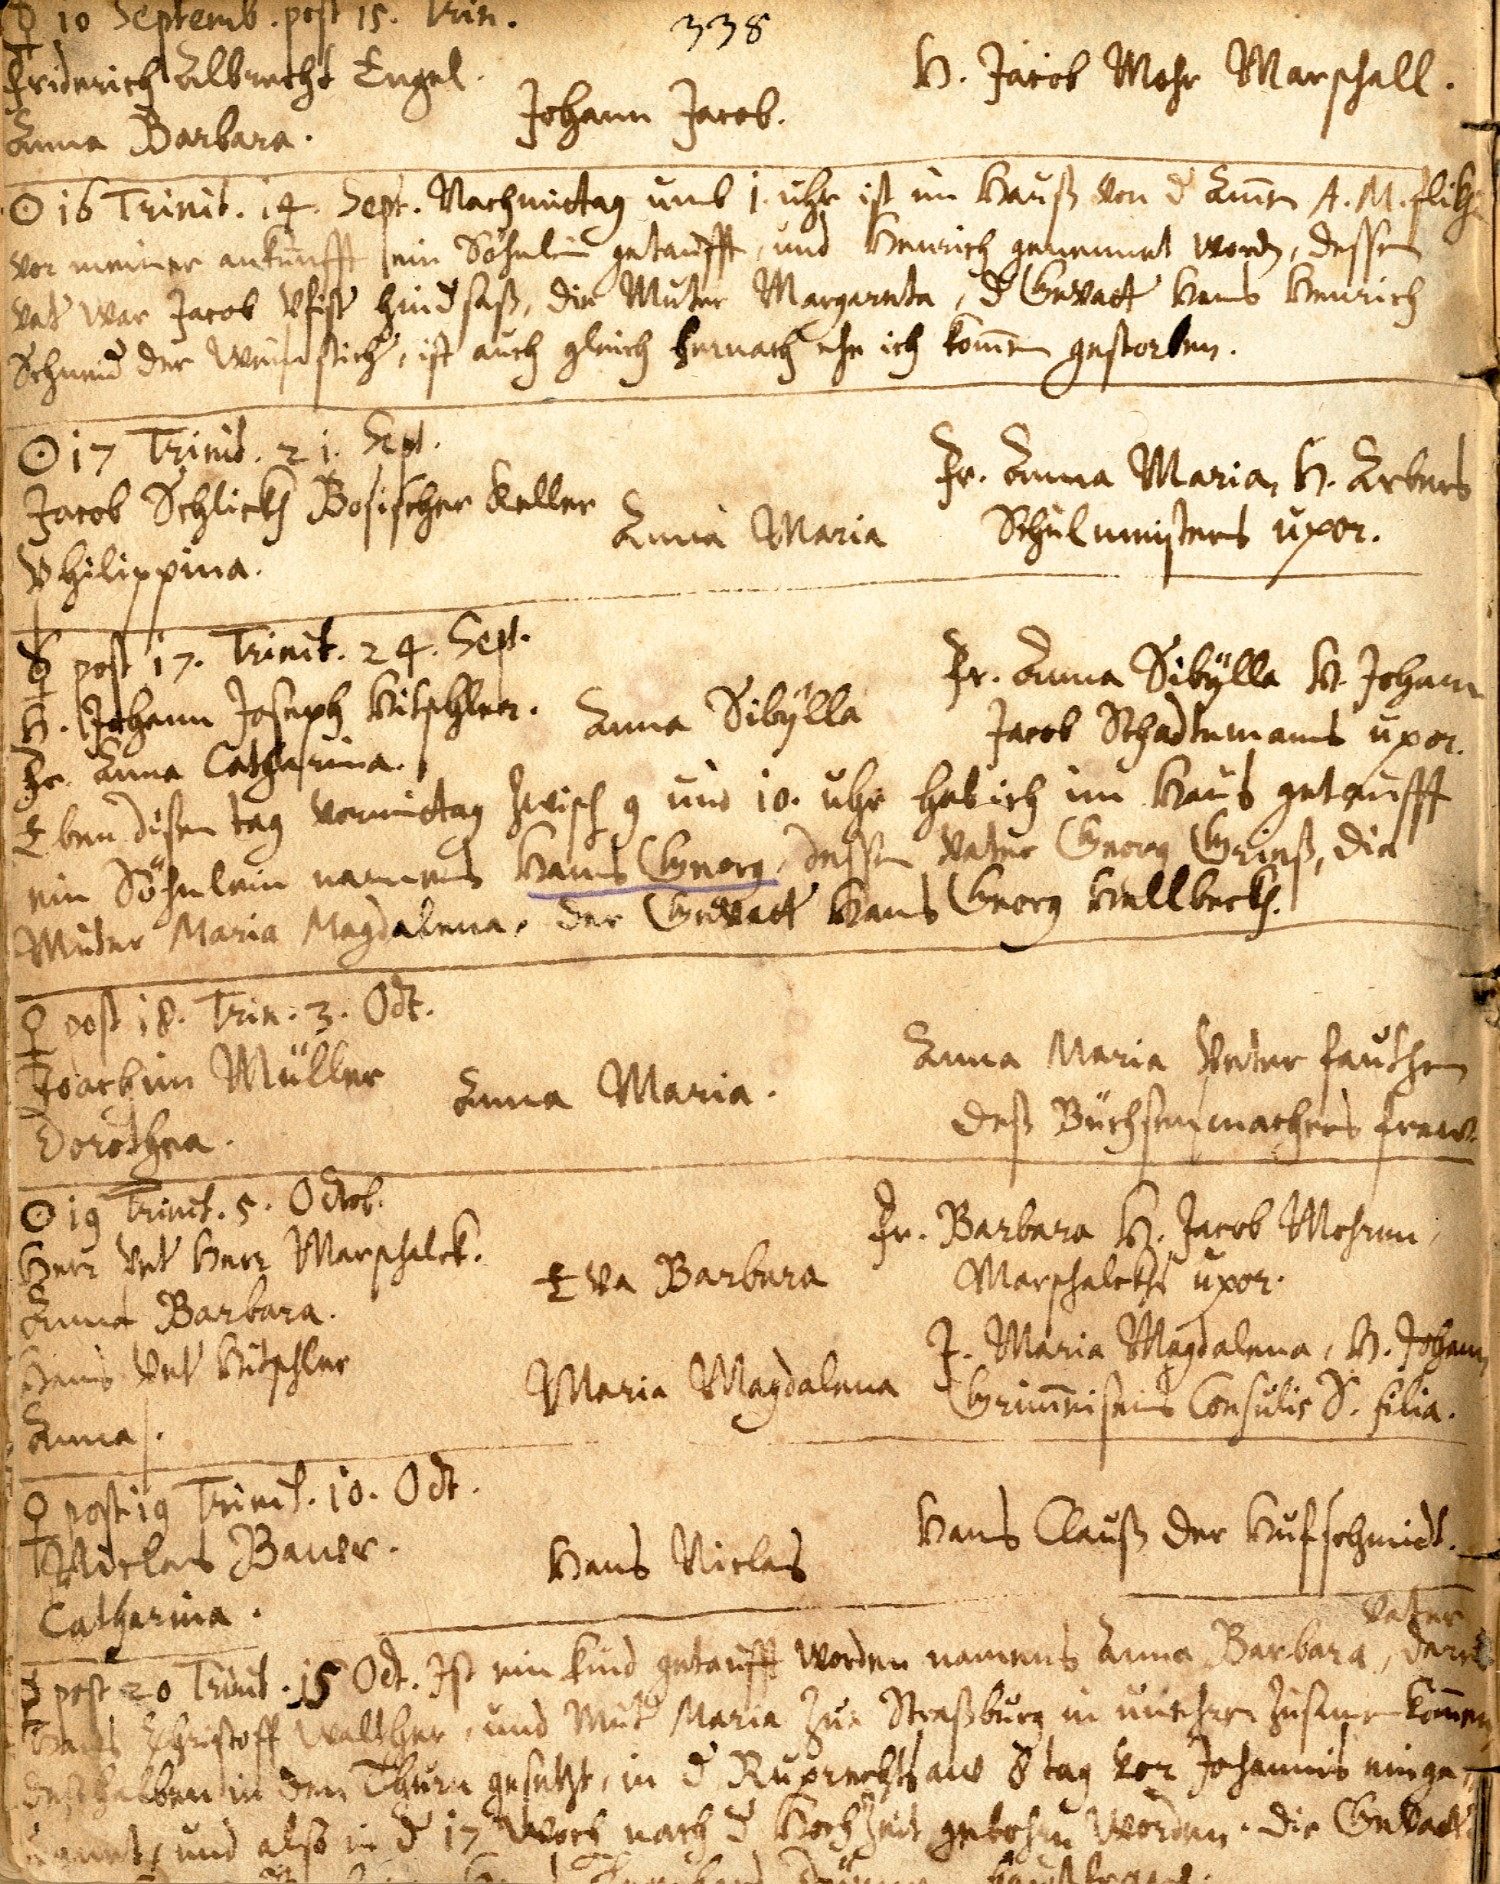 ☿ 10 Septemb. post 15. Trin.
338
Friderich Albrecht Engel.
Anna Barbara.
Johann Jacob.
H. Jacob Mohr Marschall.
☉ 16 Trinit. 14. Sept. Nachmittag umb 1. uhr ist im Hauß von d A. M.
vor meiner ankunfft ein Söhnlein getaufft, und Henrich genennet worden, dessen
Vat war Jacob hindsaß, die Muter Margareta, d Gevatt Hans Henrich
Schneid der, ist auch gleich hernach ehe ich kommen gestorben.
☉ 17 Trinit. 21. Sept.
Jacob Schlick Bosischer Keller
Philippina.
Anna Maria
Fr. Anna Maria, H. Arbers
Schulmeisters uxor.
☿ post 17. Trinit. 24. Sept.
H. Johann Joseph Hitschler.
Fr. Anna Catharina.
Anna Sibÿlla
Fr. Anna Sibÿlla H. Johann
Jacob Schadtemans uxor.
Eben disen tag vormittag zwisch 9 und 10. uhr hab ich im Haus getaufft
ein Söhnlein namens Hans Georg, dessen Vater Georg Grieß, die
Muter Maria Magdalena, der Gevatt Hans Georg Hellbeck.
♀ post 18. Trin. 3. Oct.
Joachim Müller
Dorothea.
Anna Maria.
Anna Maria Veter Fauthen
deß Büchsenmachers fraw.
☉ 19 Trinit. 5. Octob.
Herr Vet Herr Marschalck.
Anna Barbara.
Eva Barbara
Fr. Barbara H. Jacob Mohren,
Marschalcks uxor.
Hans Vet Hitschler
Anna.
Maria Magdalena
J. Maria Magdalena, H. Johann
Grimmeisens Consulis S. filia.
♀ post 19 Trinit. 10. Oct.
Niclas Bauer.
Catharina.
Hans Niclas
Hans Clauß der Hufschmidt.
Vater
☿ post 20 Trinit. 15 Oct. Ist ein kind getaufft worden namens Anna Barbara,
Hans Christoff Walther, und Mut Maria zu Straßburg in zusamen kommen,
desthalben in den Thurn gesetzt, in d Ruprechtsaw 8 tag vor Johannis einge
und also in d 17 Woch nach d Hochzeit gebohrn worden. Die Gevatt